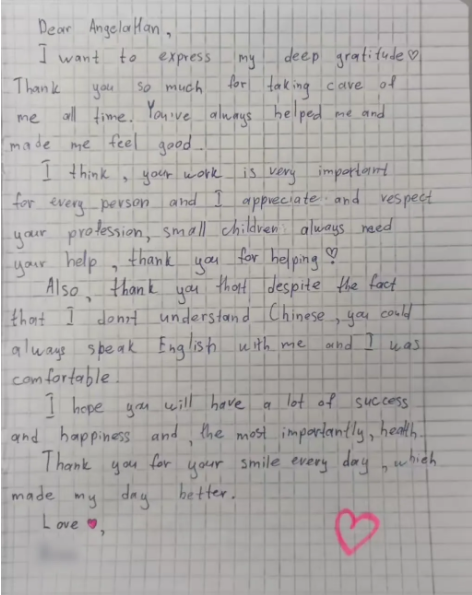 Dear AngelaHan,
I want to express my deep gratitude♡
Thank you so much for taking care of
me all time. You've always helped me and
made me feel good.
I think, your work is very important
for every person and I appreciate and respect
your profession, small children always need
your help, thank you for helping♡
Also, thank you that despite the fact
that I don't understand Chinese, you could
always speak English with me and I was
comfortable.
I hope you will have a lot of success
and happiness and, the most importantly, health
Thank you for your smile every day, which
made my day better.
Love ♥,